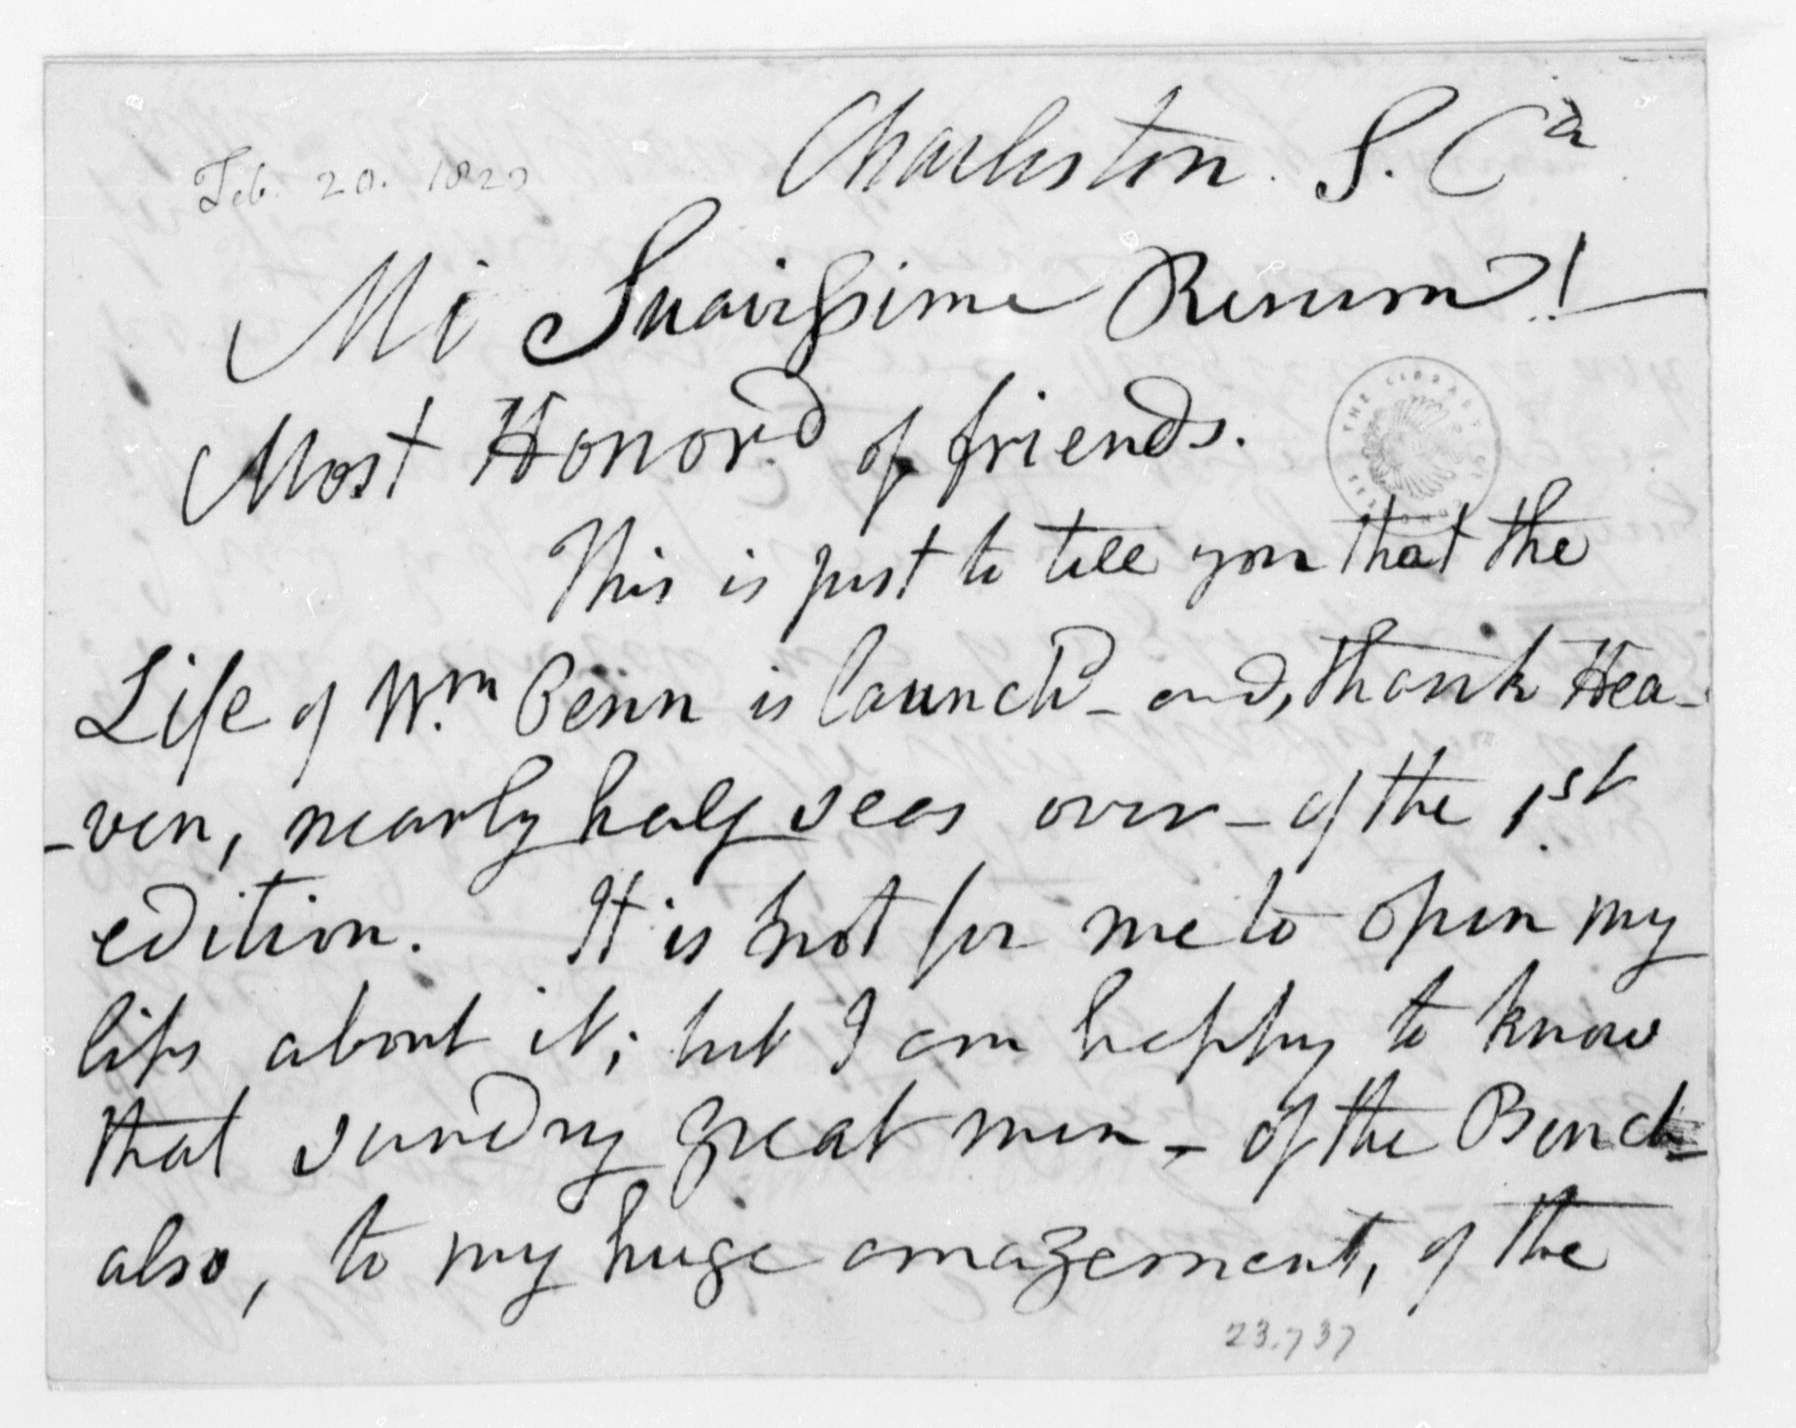 Charleston. S. Ca
Feb. 20. 1822
Mi Suavissime Rerum!
Most Honord of friends.
THE LIBRARY OF CONGRESS
This is just to tell you that the
Life of Wm Penn is launchd - and, thank Hea-
-ven, nearly half seas over - of the 1st
edition. It is not for me to open my
lips about it; but I am happy to know
that sundry great men - of the Bench
also, to my huge amazement, of the
23.737